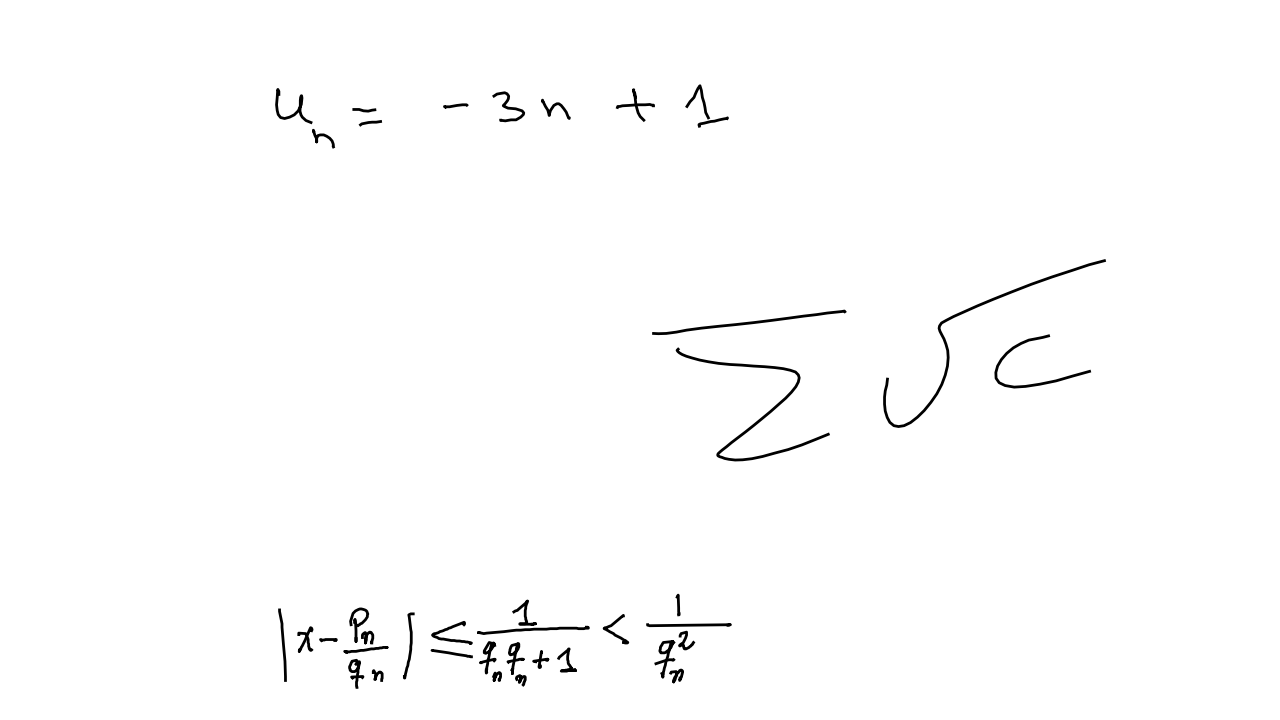 uₙ = -3n + 1
∑ √c
|x - pₙ/qₙ| ≤ 1/(qₙqₙ + 1) < 1/qₙ²